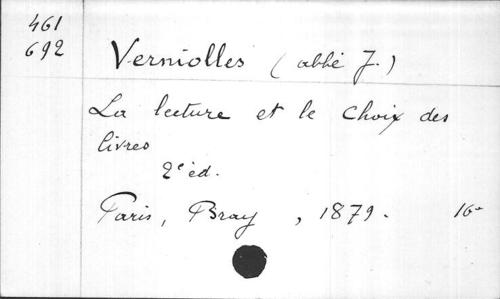 461
692
Verniolles (abbé J.)
La lecture et le choix des
livres
2e éd.
Paris, Bray, 1879. 16°